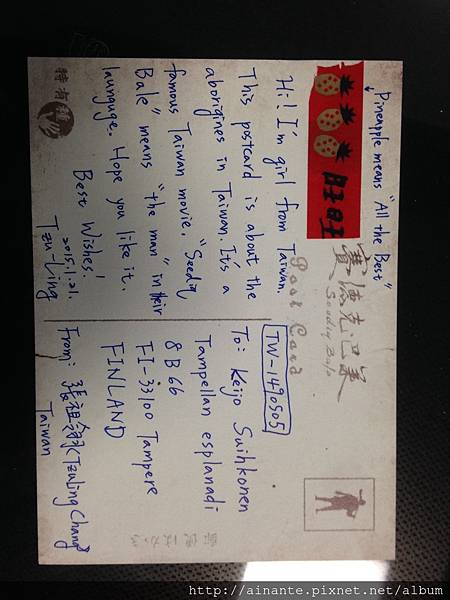 Pineapple means "All the Best"
旺旺
Hi! I'm girl from Taiwan.
This postcard is about the
aborigines in Taiwan. It's a
famous Taiwan movie. "Seediq
Bale" means "the man" in their
launguge. Hope you like it.
Best Wishes!
2015.1.21.
Tzu-Ling
特有種
賽德克巴萊
Seediq Bale
Post Card
TW-1490505
To: Keijo Suihkonen
Tampellan esplanadi
8 B 66
FI-33100 Tampere
FINLAND
From: 張祖翎 (Tzuling Chang)
Taiwan
http://ainante.pixnet.net/album